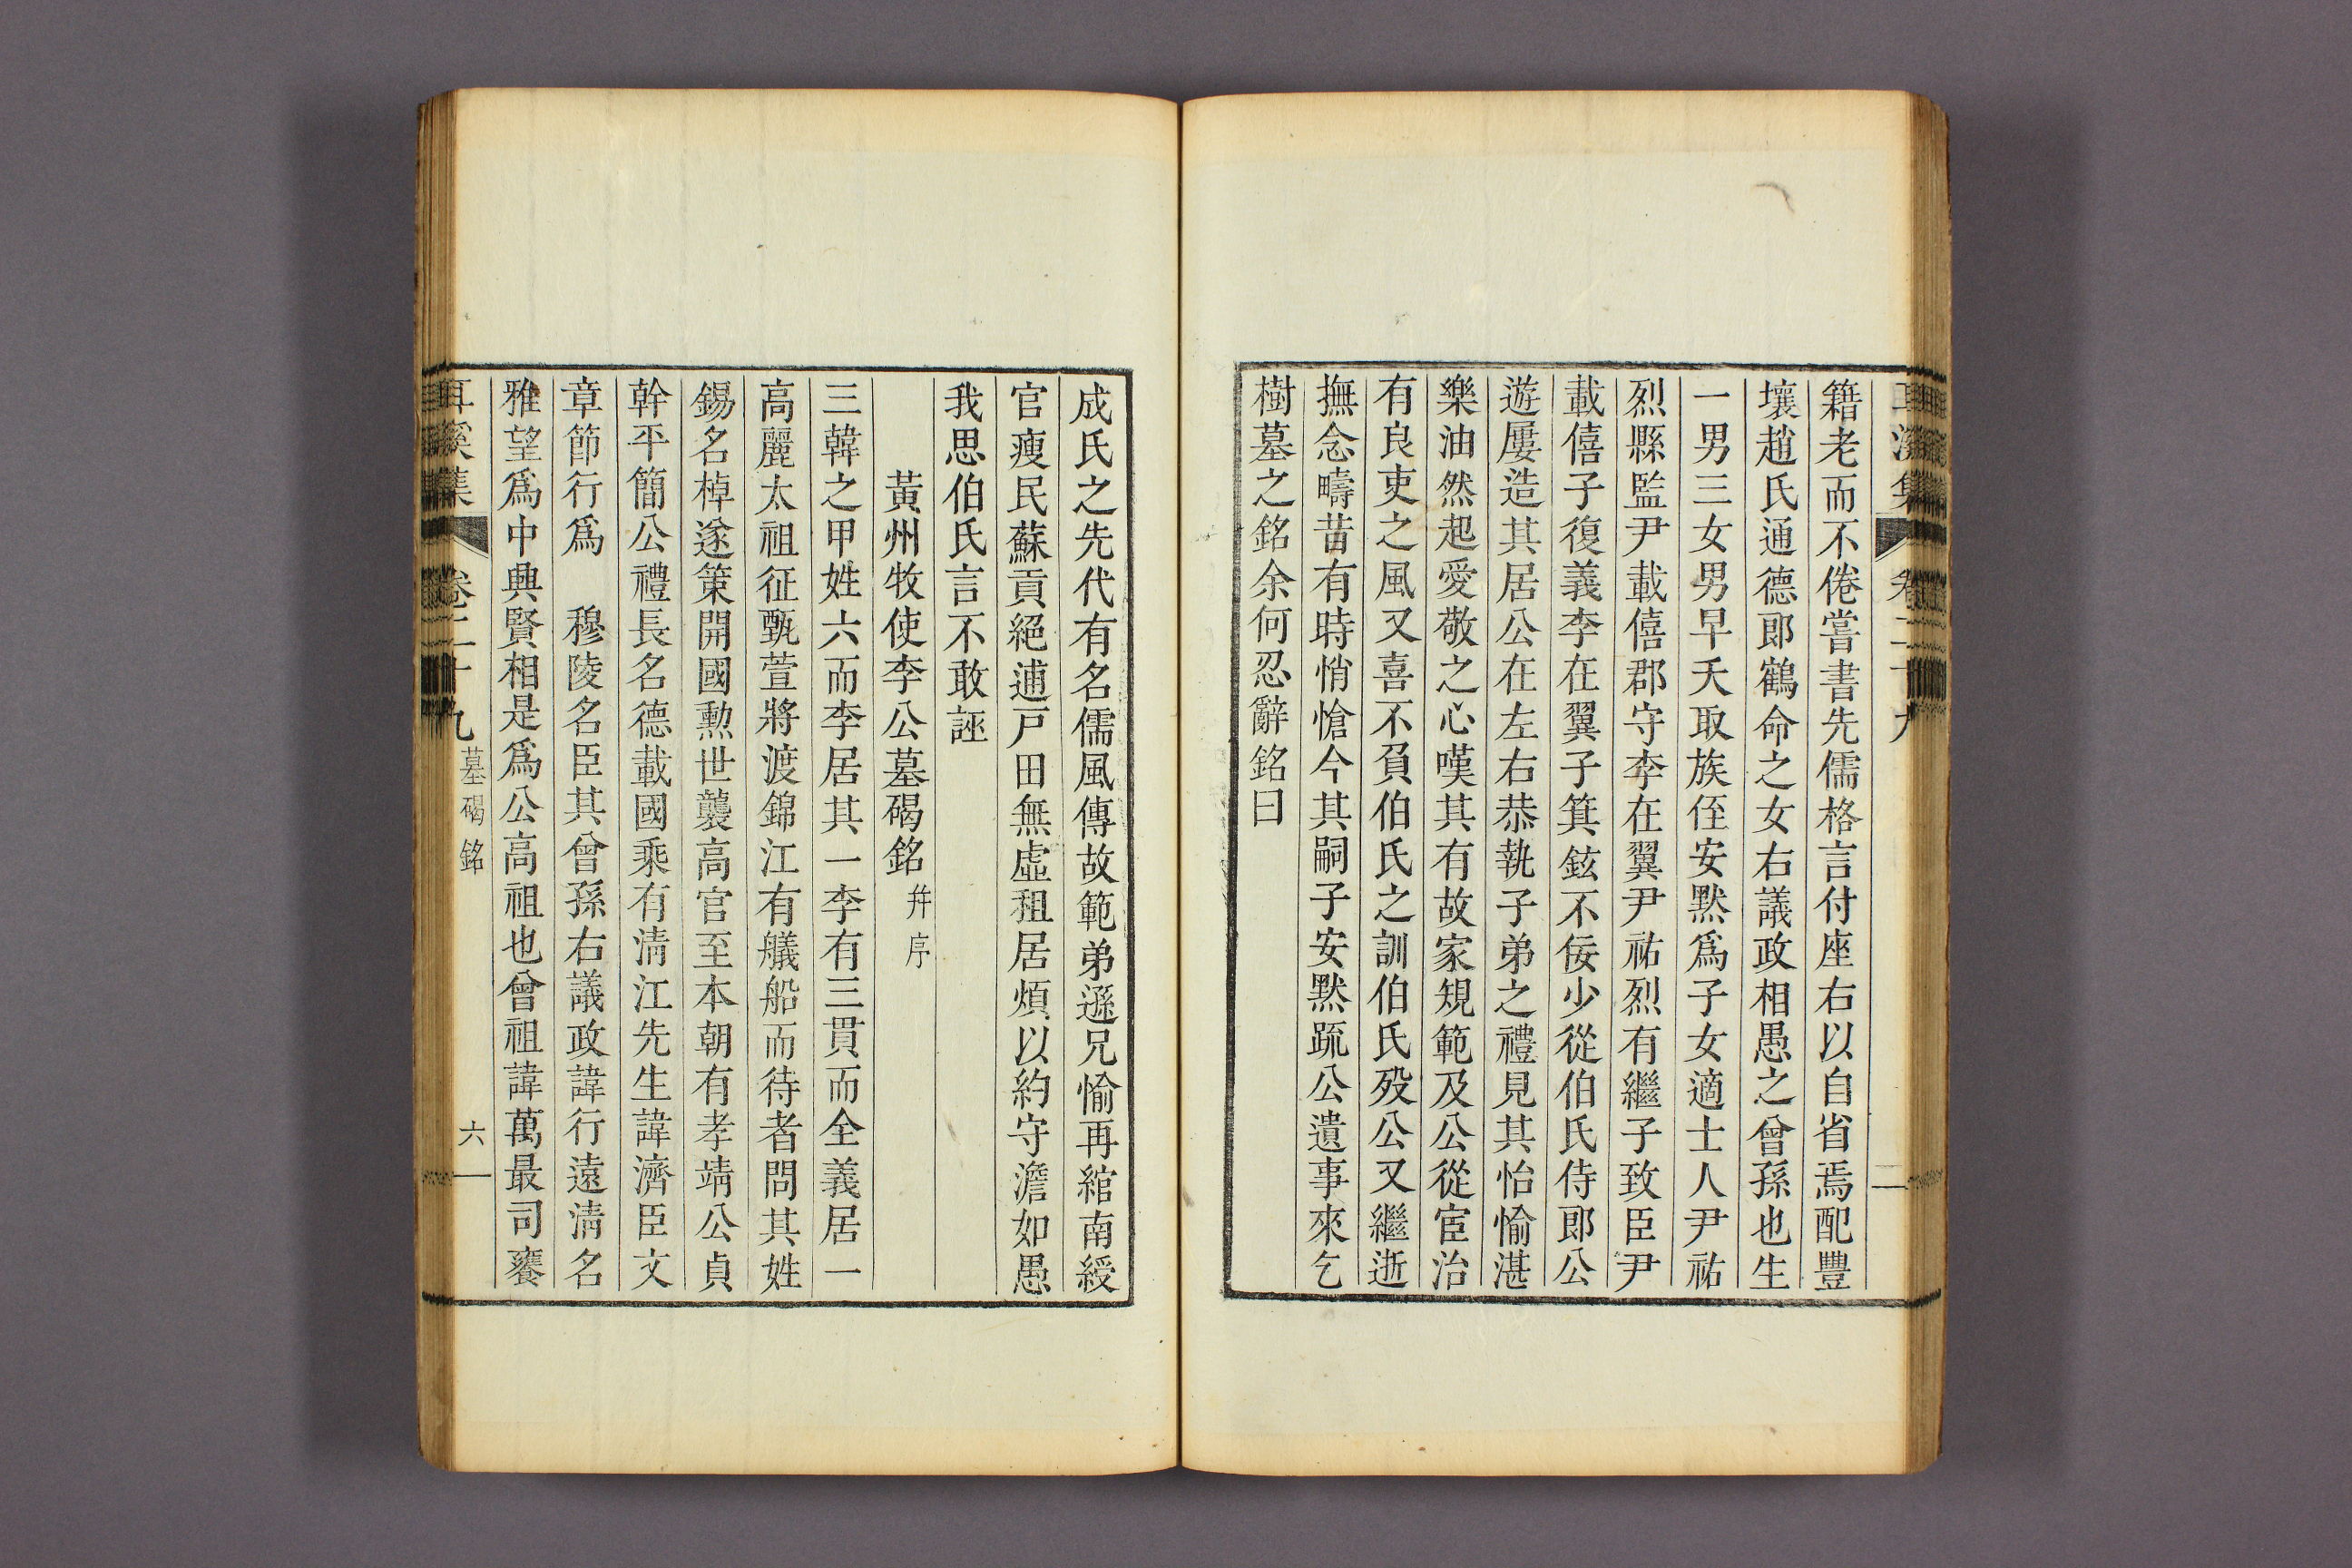 籍老而不倦嘗書先儒格言付座右以自省焉配豐
壤趙氏通德郎鶴命之女右議政相愚之曾孫也生
一男三女男早夭取族侄安默爲子女適士人尹祐
烈縣監尹載僖郡守李在翼尹祐烈有繼子致臣尹
載僖子復義李在翼子箕鉉不佞少從伯氏侍郎公
遊屢造其居公在左右恭執子弟之禮見其怡愉湛
樂油然起愛敬之心嘆其有故家規範及公從宦治
有良吏之風又喜不負伯氏之訓伯氏歿公又繼逝
撫念疇昔有時悄愴今其嗣子安默疏公遺事來乞
樹墓之銘余何忍辭銘曰
成氏之先代有名儒風傳故範弟遜兄愉再綰南綬
官瘦民蘇貢絕逋戶田無虛租居煩以約守澹如愚
我思伯氏言不敢誣
黃州牧使李公墓碣銘 幷序
三韓之甲姓六而李居其一李有三貫而全義居一
高麗太祖征甄萱將渡錦江有艤船而待者問其姓
錫名棹遂策開國勳世襲高官至本朝有孝靖公貞
幹平簡公禮長名德載國乘有淸江先生諱濟臣文
章節行爲 穆陵名臣其曾孫右議政諱行遠淸名
雅望爲中興賢相是爲公高祖也曾祖諱萬最司饔
耳溪集 卷二十九 墓碣銘 六